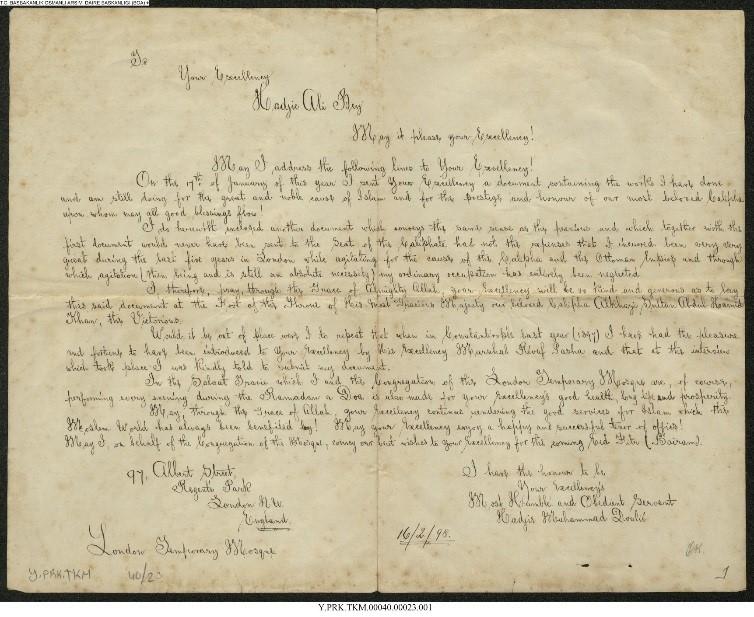 T.C. BASBAKANLIK OSMANLI ARSIVI DAIRE BASKANLIGI (BOA)
To
Your Excellency
Hadjie Ali Bey
May it please your Excellency!
May I address the following lines to Your Excellency!
On the 17th of January of this year I sent Your Excellency a document containing the works I have done
and am still doing for the great and noble cause of Islam and for the prestige and honour of our most beloved Califeha
upon whom may all good blessings flow!
I do herewith enclosed another document which conveys the same sense as the previous and which together with the
first document would never have been sent to the Seat of the Caliphate had not the expenses that I incurred been very very
great during the last five years in London while agitating for the cause of the Calipha and the Ottoman Empire and through
which agitation (then being and is still an absolute necessity) my ordinary occupation has entirely been neglected.
I therefore, pray, through the Grace of Almighty Allah, your Excellency will be so kind and generous as to lay
this said document at the Foot of the Throne of His Most Gracious Majesty our beloved Calipha Alkhazi Sultan Abdul Hamid
Khan, the Victorious.
Would it be out of place were I to repeat that when in Constantinople last year (1897) I have had the pleasure
and fortune to have been introduced to Your Excellency by His Excellency Marshal Pasha and that at the interview
which took place I was kindly told to submit my document.
In the Salaat Travie which I and the Congregation of this London Temporary Mosque are, of course,
performing every evening during the Ramadan a Doa is also made for your Excellency's good health, long life and prosperity.
May, through the Grace of Allah, your Excellency continue rendering the good services for Islam which the
Moslem World has always been benefited by! May your Excellency enjoy a happy and successful tenor of office!
May I, on behalf of the Congregation of the Mosque, convey our best wishes to your Excellency for the coming Eid Fetr (Bairam).
97, Albert Street,
Regents Park
London N.W.
England.
London Temporary Mosque
I have the honour to be
Your Excellency's
Most Humble and Obedient Servant
Hadjie Muhammad Doulie
16/2/98.
Y.PRK.TKM
40/23
1
Y.PRK.TKM.00040.00023.001